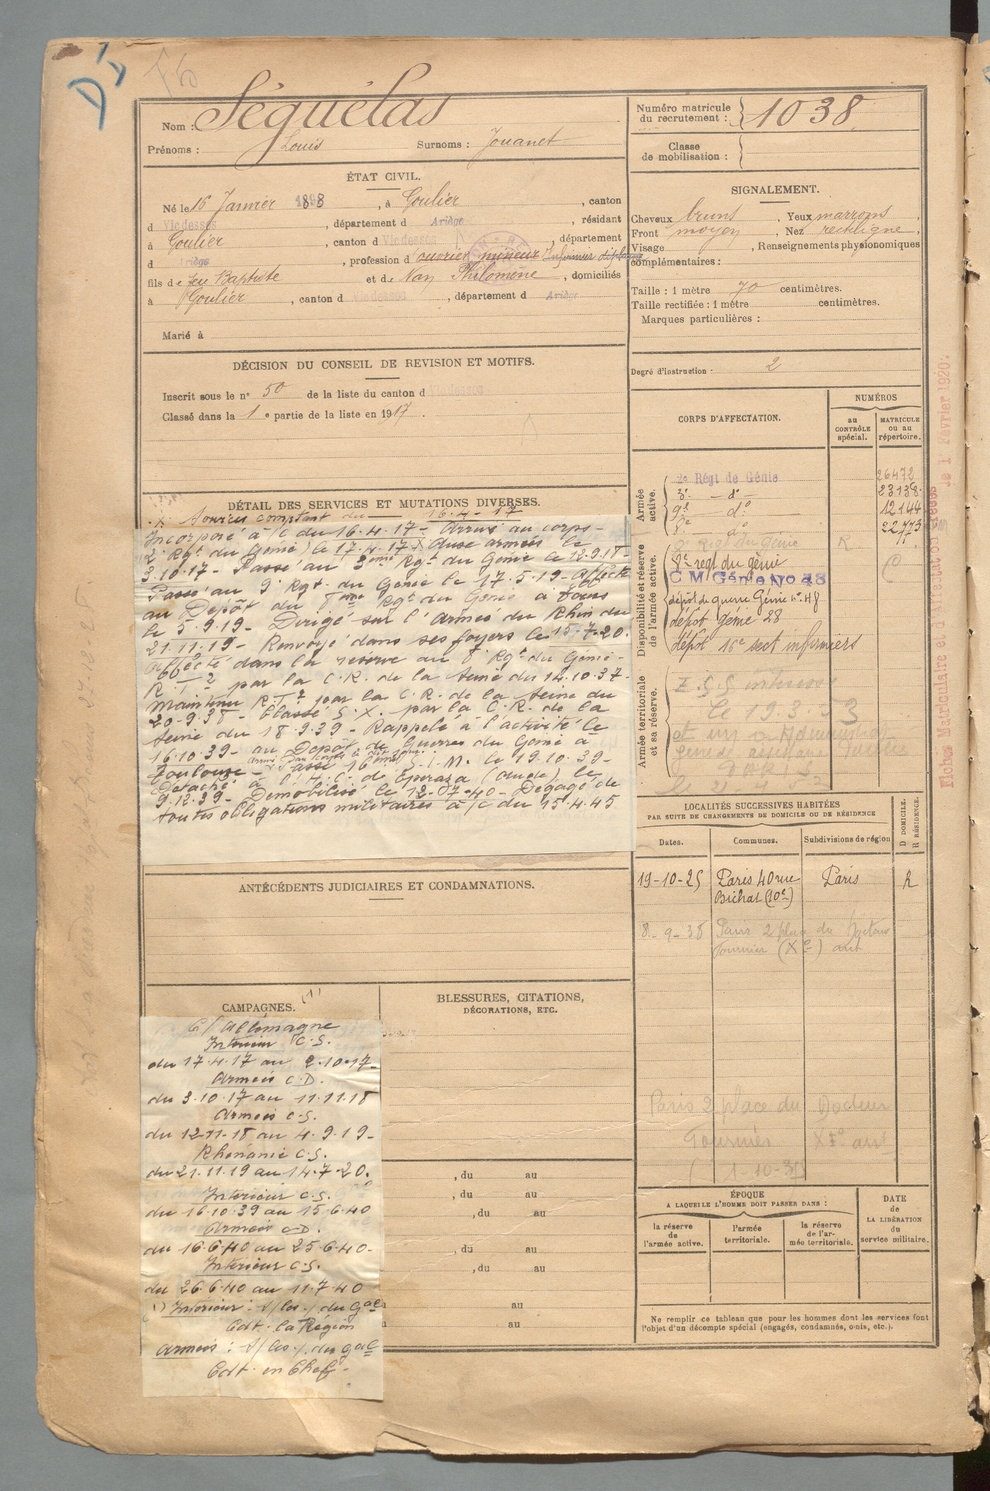 Nom : Séguélas
Prénoms : Louis Surnoms : Jouanet
Numéro matricule du recrutement : 1038
Classe de mobilisation :
ÉTAT CIVIL.
Né le 16 Janvier 1898, à Goulier, canton
d Vicdessos, département d Ariège, résidant
à Goulier, canton d Vicdessos, département
d Ariège, profession d ouvrier mineur Infirmier diplômé
fils de feu Baptiste et de Nan Philomène, domiciliés
à Goulier, canton d Vicdessos, département d Ariège
Marié à
SIGNALEMENT.
Cheveux bruns, Yeux marrons
Front moyen, Nez rectiligne,
Visage , Renseignements physionomiques
complémentaires :
Taille : 1 mètre 70 centimètres.
Taille rectifiée : 1 mètre centimètres.
Marques particulières :
Degré d'instruction : 2
DÉCISION DU CONSEIL DE REVISION ET MOTIFS.
Inscrit sous le n° 50 de la liste du canton d Vicdessos
Classé dans la 1e partie de la liste en 1917.
DÉTAIL DES SERVICES ET MUTATIONS DIVERSES.
Incorporé à/c du 16.4.17 - Arrivé au corps -
2e Rgt du Génie) le 17.4.17. Aux armées le
3.10.17 - Passé au 3eme Rgt du Génie le 12.9.18 -
Passé au 9e Rgt. du Génie le 17.5.19 - Affecté
au Dépôt du 7eme Rgt du Génie à Tours
le 5.9.19 - Dirigé sur l'Armée du Rhin du
21.11.19 - Renvoyé dans ses foyers le 15.7.20.
Affecté dans la réserve au Rgt du Génie -
par la C.R. de la Seine du 14.10.37 -
Maintenu par la C.R. de la Seine du
20.9.38 - Classé S.X. par la C.R. de la
Seine du 18.9.39 - Rappelé à l'activité le
16.10.39 - au Dépôt de Guerre du Génie à
Toulouse - Passé 16eme S.I.M. le 19.10.39 -
Détaché à l'H.C. de Eperaza (Aude) le
9.12.39 - Démobilisé le 12-07-40 - Dégagé de
toutes obligations militaires à/c du 15.4.45
CORPS D'AFFECTATION.
NUMÉROS
au CONTRÔLE spécial.
MATRICULE ou au répertoire.
Armée active.
2e Régt de Génie 26472
3e — do 23138
9e — do 12144
7e — do 22773
Disponibilité et réserve de l'armée active.
8e regt du génie
C M Génie No 48
dépôt de guerre Génie no 48
dépôt génie 28
dépôt 16e sect infirmiers
Armée territoriale et sa réserve.
le 19.3.53
PARIS
Fiches Matriculaire et d'Affectation
le 1er Février 1920.
LOCALITÉS SUCCESSIVES HABITÉES
PAR SUITE DE CHANGEMENTS DE DOMICILE OU DE RÉSIDENCE
D DOMICILE. R RÉSIDENCE.
Dates. Communes. Subdivisions de région
19-10-25 Paris 40 rue Bichat (10e) Paris R
8-9-38 Paris 2 place du Docteur Fournier (Xe) art
Paris 2 place du Docteur
Fournier Xe art
1-10-35
ANTÉCÉDENTS JUDICIAIRES ET CONDAMNATIONS.
CAMPAGNES. (1)
C/ Allemagne
Intérieur C.S.
du 17.4.17 au 2.10.17 -
Armées C.D.
du 3.10.17 au 11.11.18
Armées C.S.
du 12.11.18 au 4.9.19 -
Rhénanie C.S.
du 21.11.19 au 14.7.20.
Intérieur C.S.
du 16.10.39 au 15.6.40
Armées C.D.
du 16.6.40 au 25.6.40 -
Intérieur C.S.
du 26.6.40 au 11.7.40
(1) Intérieur : du Gal
Cdt la Région
Armées : du Gal
Cdt en Chef -
BLESSURES, CITATIONS, DÉCORATIONS, ETC.
, du au
, du au
, du au
, du au
, du au
au
au
ÉPOQUE
A LAQUELLE L'HOMME DOIT PASSER DANS :
la réserve de l'armée active.
l'armée territoriale.
la réserve de l'armée territoriale.
DATE de LA LIBÉRATION du service militaire.
Ne remplir ce tableau que pour les hommes dont les services font
l'objet d'un décompte spécial (engagés, condamnés, omis, etc.).